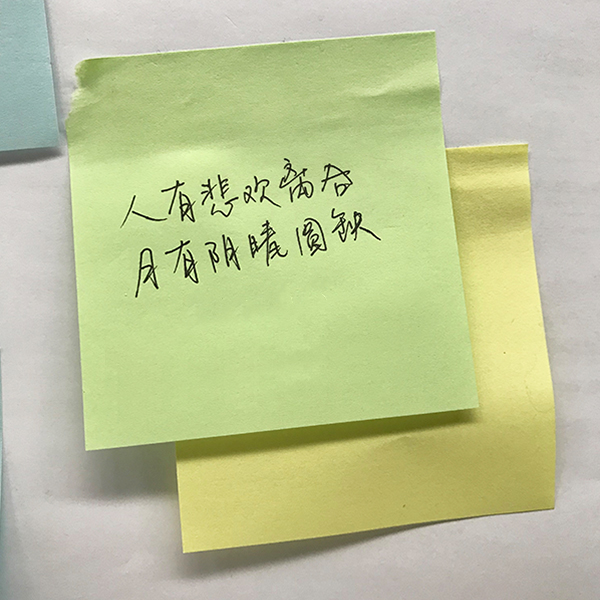 人有悲欢离合
月有阴晴圆缺